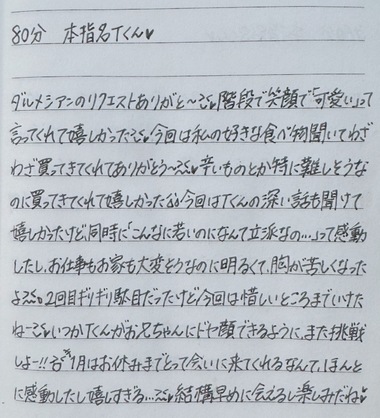 80分 本指名Tくん♥
ダルメシアンのリクエストありがと〜♡階段で笑顔で「可愛い」って
言ってくれて嬉しかった♡今回は私の好きな食べ物聞いてわざ
わざ買ってきてくれてありがとう〜♡辛いものとか特に難しそうな
のに買ってきてくれて嬉しかった♡今回はTくんの深い話も聞けて
嬉しかったけど、同時に「こんなに若いのになんて立派なの…」って感動
したし、お仕事もお家も大変そうなのに明るくて、胸が苦しくなった
よ♡2回目ギリギリ駄目だったけど今回は惜しいところまでいけた
ね〜♡いつかTくんがお兄ちゃんにドヤ顔できるように、また挑戦
しよー!!✊1月はお休みまでとって会いに来てくれるなんて、ほんと
に感動したし嬉しすぎる…♡結構早めに会えるし楽しみだね♥